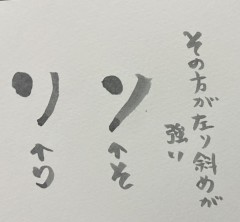 その方が左り斜めが
強い
ソ
↑そ
リ
↑り